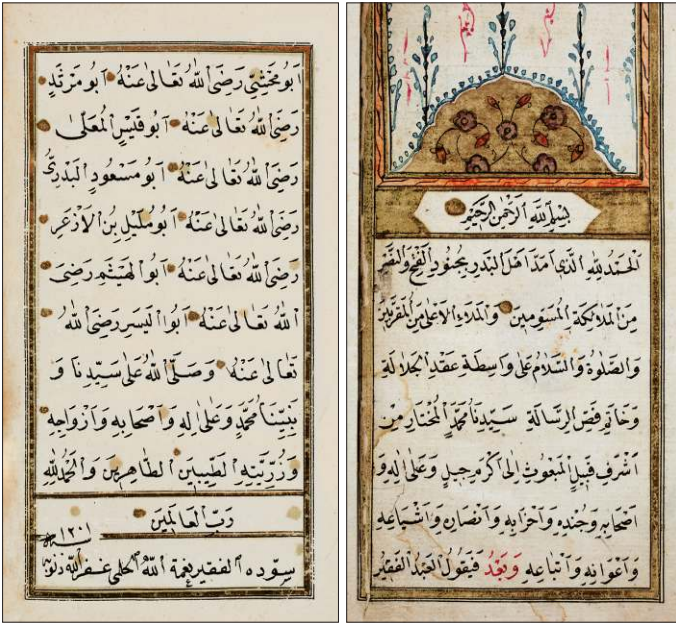 بِسْمِ اللّٰهِ الرَّحْمٰنِ الرَّحِيْمِ
اَلْحَمْدُ لِلّٰهِ الَّذِى اَمَدَّ اَهْلَ الْبَدْرِ بِجُنُودِ الْفَتْحِ وَالنَّصْرِ
مِنَ الْمَلَائِكَةِ الْمُسَوِّمِينَ وَالْمَلَاءِ الْاَعْلٰى مِنَ الْمُقَرَّبِينَ
وَالصَّلٰوةُ وَالسَّلَامُ عَلٰى وَاسِطَةِ عِقْدِ الْجَلَالَةِ
وَخَاتَمِ فَصِّ الرِّسَالَةِ سَيِّدِنَا مُحَمَّدٍ الْمُخْتَارِ مِنْ
اَشْرَفِ قَبِيلٍ الْمَبْعُوثِ اِلٰى اَكْرَمِ جِيلٍ وَعَلٰى اٰلِهِ وَ
اَصْحَابِهِ وَجُنْدِهِ وَاَحْزَابِهِ وَاَنْصَارِهِ وَاَشْيَاعِهِ
وَاَعْوَانِهِ وَاَتْبَاعِهِ وَبَعْدُ فَيَقُولُ الْعَبْدُ الْفَقِيرُ
اَبُو مَخْشِيٍّ رَضِيَ اللّٰهُ تَعَالٰى عَنْهُ اَبُو مَرْثَدٍ
رَضِيَ اللّٰهُ تَعَالٰى عَنْهُ اَبُو قَيْسٍ الْمُعَلّٰى
رَضِيَ اللّٰهُ تَعَالٰى عَنْهُ اَبُو مَسْعُودٍ الْبَدْرِىُّ
رَضِيَ اللّٰهُ تَعَالٰى عَنْهُ اَبُو مُلَيْلِ بْنِ الْاَزْعَرِ
رَضِيَ اللّٰهُ تَعَالٰى عَنْهُ اَبُو الْهَيْثَمِ رَضِيَ
اللّٰهُ تَعَالٰى عَنْهُ اَبُوا الْيَسَرِ رَضِيَ اللّٰهُ
تَعَالٰى عَنْهُ وَصَلَّى اللّٰهُ عَلٰى سَيِّدِنَا وَ
نَبِيِّنَا مُحَمَّدٍ وَعَلٰى اٰلِهِ وَاَصْحَابِهِ وَاَزْوَاجِهِ
وَذُرِّيَّتِهِ الطَّيِّبِينَ الطَّاهِرِينَ وَالْحَمْدُ لِلّٰهِ
رَبِّ الْعَالَمِينَ
سنة ١٢٠١
سوّده الفقير نعمة الله الحلمى غفر الله ذنوبه